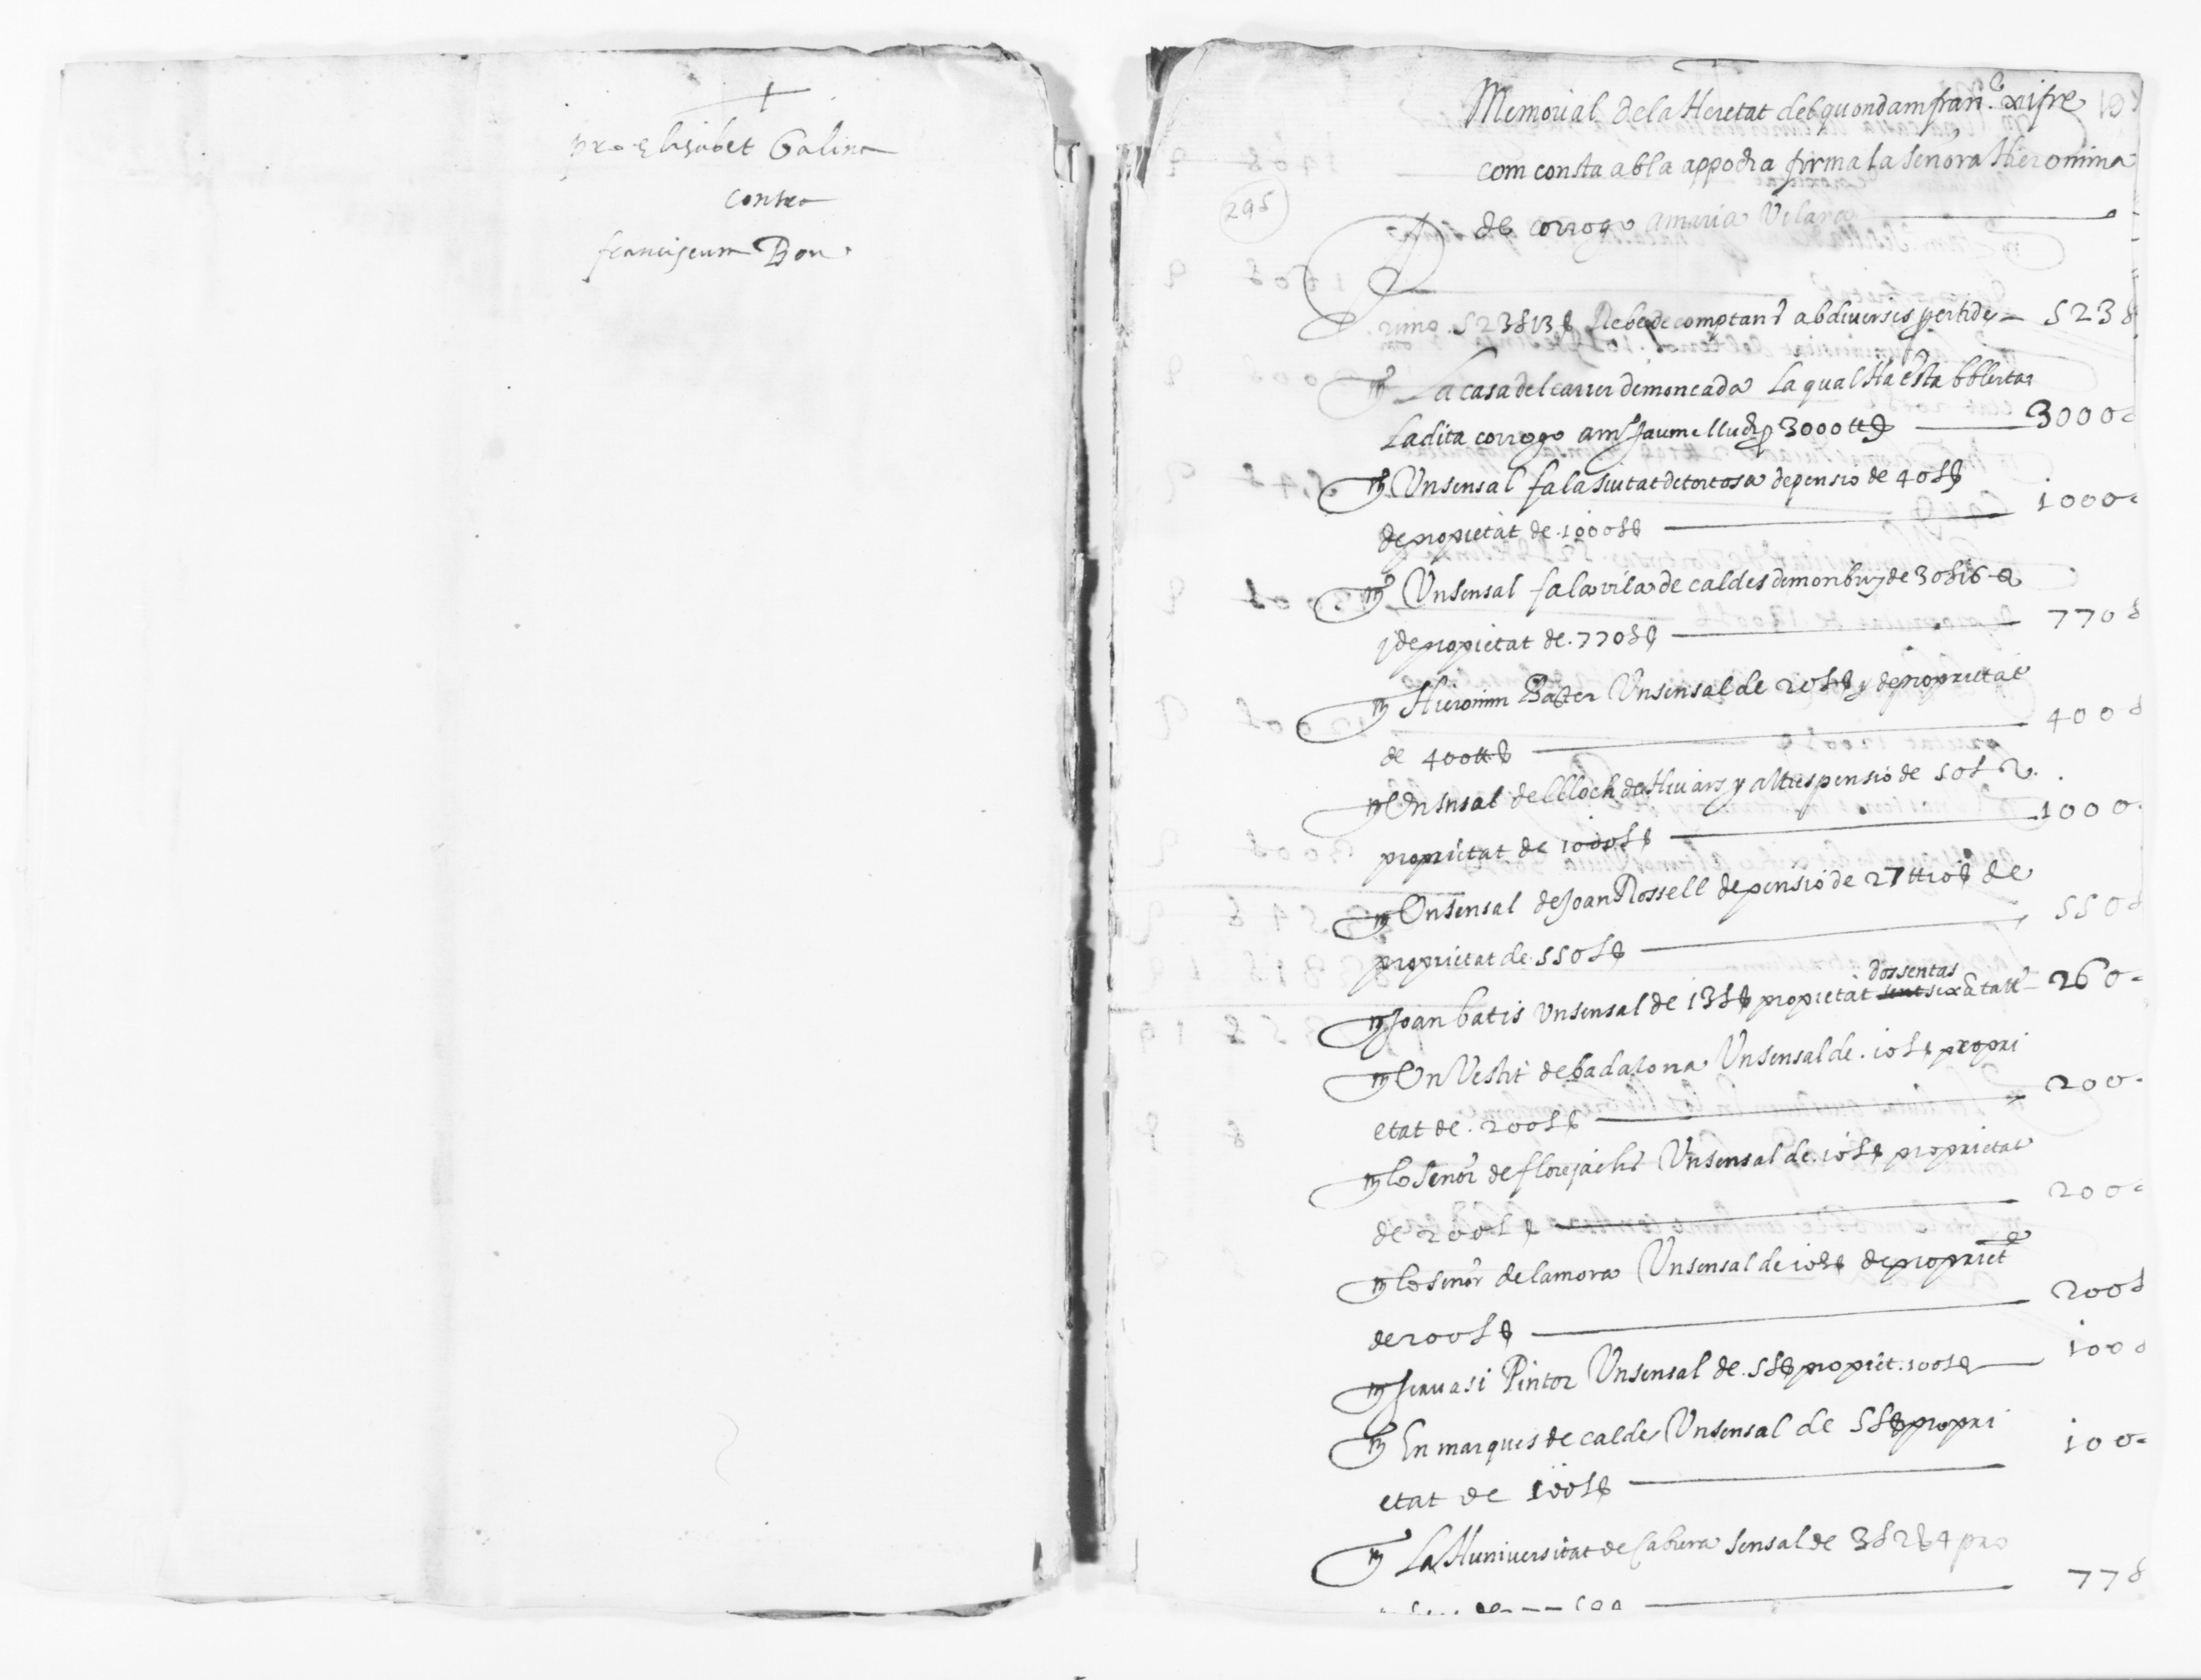 pro Elisabet Galina
contra
franciscum Bou
Memorial de la Heretat del quondam franc. xifre
com consta ab la appocha firma la señora Hieronima
de corrogo a maria Vilar
295
Primo 523 ₶ 13 ß Rebe de comptant ab diversis pertides 523 ₶
Mº La casa del carrer de moncada La qual Ha
La dita corrogo a mº Jaume lluch p 3000 ₶ 3000
Mº Un sensal fa la siutat de tortosa de pensio de 40 ₶ ß
de propietat de 1000 ₶ ß 1000
Mº Un sensal fa la vila de caldes de monbuy de 30 ₶ 16 ß
y de propietat de 770 ₶ ß 770 ₶
Mº Hieronim Un sensal de 20 ₶ ß y de proprietat
de 400 ₶ ß 400 ₶
Mº Un sensal del lloch de y altres pensio de 50 ₶
proprietat de 1000 ₶ ß 1000
Mº Un sensal de Joan Rossell de pensio de 27 ₶ 10 ß de
proprietat de 550 ₶ ß 550 ₶
dossentas
Mº Joan batis Un sensal de 13 ₶ ß propietat sent sixãta ₶ 260
Mº En Vestit de badalona Un sensal de 10 ₶ ß propri
etat de 200 ₶ ß 200
Mº Lo señor de florejachs Un sensal de 10 ₶ ß proprietat
de 200 ₶ ß 200
Mº Lo señor de la mora Un sensal de 10 ₶ ß de propriet
de 200 ₶ ß 200 ₶
Mº Jervasi Pintor Un sensal de 5 ₶ ß propiet. 100 ₶ ß 100
Mº En marques de caldes Un sensal de 5 ₶ ß propri
etat de 100 ₶ ß 100
Mº La Huniversitat de Cabrera sensal de 3 ₶ 2 ß 4 pro
77 ₶